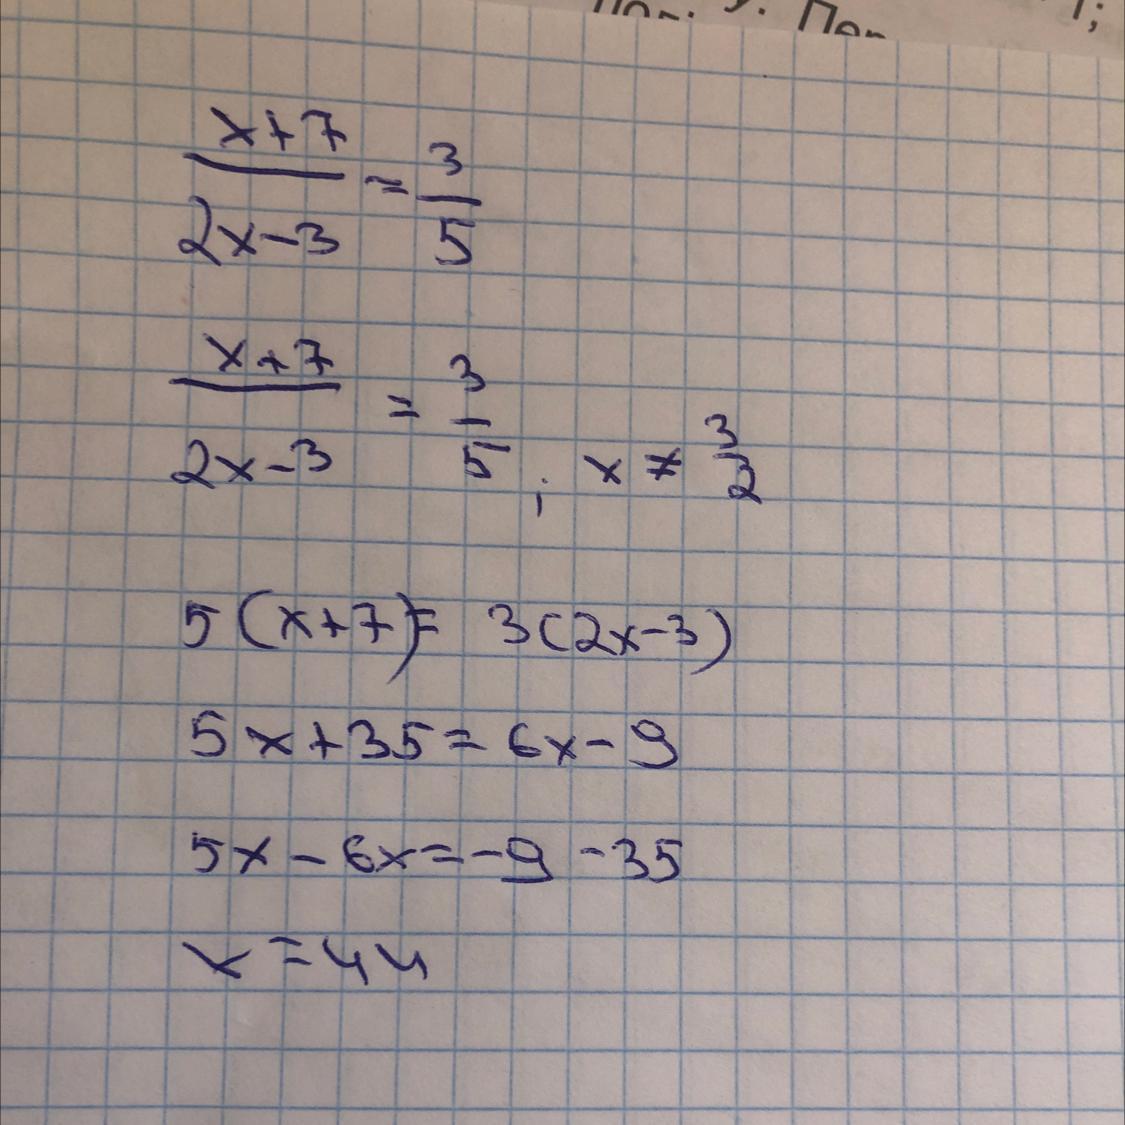 (x+7)/(2x-3) = 3/5
(x+7)/(2x-3) = 3/5 ; x ≠ 3/2
5(x+7) = 3(2x-3)
5x+35=6x-9
5x-6x=-9-35
x=44